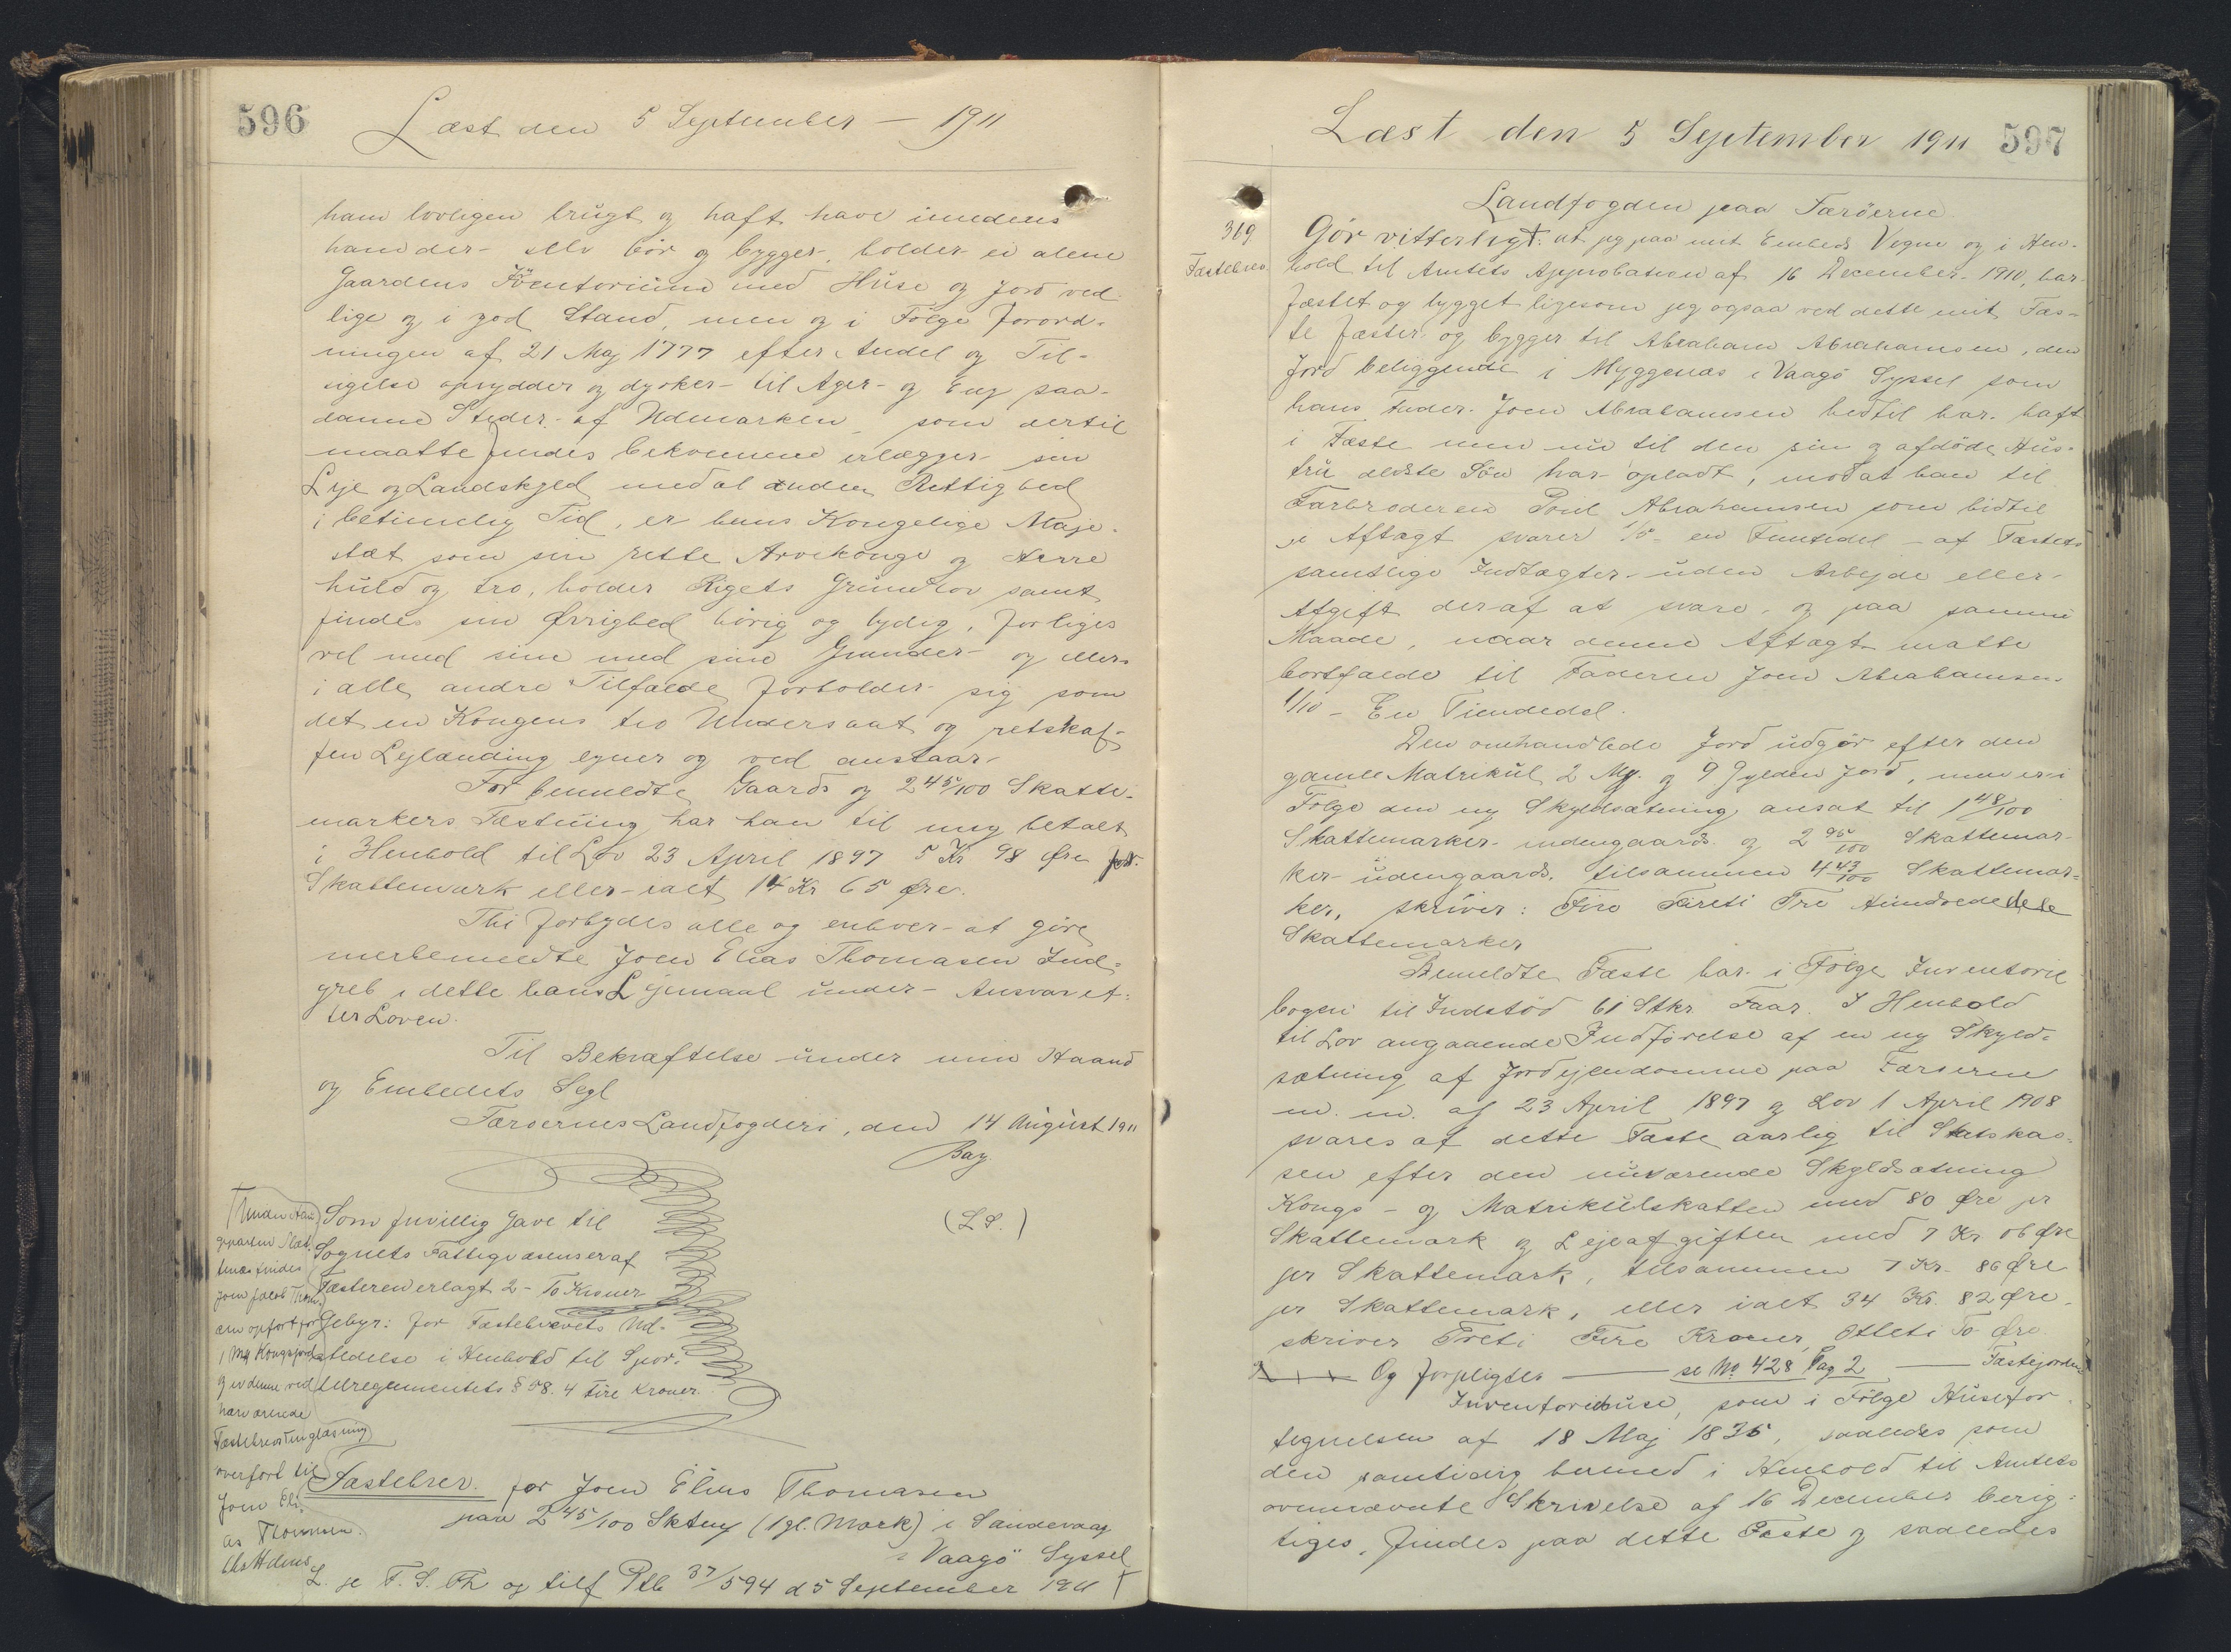 596
Læst den 5 September – 1911
ham lovligen brugt og haft have imedens
han der selv bór og bygger, holder ei alene
Gaardens Inventorium med Húse og Jord ved
lige og i god Stand, men og i Følge Forord-
ningen af 21 Maj 1777 efter Andel og Til-
sigelse oprydder og dyrker til Ager- og Eng saa-
danne Steder af Udmarken, som dertil
maatte findes bekvemme erlægger sin
Leje og Landskyld med al anden Rettighed
i betimelig Tid, er hans Kongelige Maje-
stæt som sin rette Arvekonge og Herre
huld og tro, holder Rigets Grúndlov samt
findes sin Øvrighed hörig og lydig, forliges
vel med sine med sine Grander og ellers
i alle andre Tilfælde forholder sig som
det en Kongens tro Undersaat og retskaf-
fen Lejlænding egner og vel anstaar.
For bemeldte Gaards og 2 45/100 Skatte-
markers Fæstning har han til mig betalt
i Henhold til Lov 23 April 1897 5 Kr 98 Øre for
Skattemark eller ialt 14 Kr 65 Øre.
Thi forbydes alle og enhver at göre
merbemeldte Joen Elias Thomasen Ind-
greb i dette hans Lejemaal únder Ansvar ef-
ter Loven.
Til Bekræftelse únder min Haand
og Embedets Segl
Færoernes Landfogderi, den 14 August 1911
Bay.
(L.S.)
Som frivillig Gave til
Sognets Fattigvæsenser af
Fæsteren erlagt 2 – To Kroner
Gebyr: for Fæstebrevets Ud-
stedelse i Henhold til Spor-
telreglementets § 58. 4 Fire Kroner.
findes
Joen Jacob Thom-
sen opført for
1 Mk Kongsjord
og er denne ved
nærværende
Fæstebrevs Tinglæsning
overført til
Joen Eli-
as Thomsen.
Fæstebrev for Joen Elias Thomasen
paa 2 45/100 Sktmk (1 gl. Mark) i Sandevaag
i Vaagö Syssel
L. se F. S. Th og tilf Ptb 37/594 d 5 September 1911
Læst den 5 September 1911 597
Landfogden paa Færöerne
319. Gör vitterligt: at jeg paa mit Embeds Vegne og i Hen-
Fæstebrev. hold til Amtets Approbation af 16 December 1910, har
fæstet og bygget ligesom jeg ogsaa ved dette mit Fæs-
te fæster og bygger til Abraham Abrahamsen, den
Jord beliggende i Myggenæs i Vaagö Syssel som
hans Fader Joen Abrahamsen hidtil har haft
i Fæste men nú til den sin og afdöde Hús-
trú ældste Sön har opladt, mod at han til
Farbroderen Poul Abrahamsen som hidtil
i Aftægt svarer 1/5 – en Femtedel – af Fæstets
samtlige Indtægter úden Arbejde eller
Afgift deraf at svare og paa samme
Maade, naar denne Aftægt matte
bortfalde til Faderen Joen Abrahamsen
1/10 – En Tiendedel.
Den omhandlede Jord údgör efter den
gamle Matrikúl 2 Mk. og 9 Gylden Jord, men er i
Fölge den ny Skyldsætning ansat til 1 48/100
Skattemarker indengaards og 2 95/100 Skattemar-
ker údengaards, tilsammen 4 43/100 Skattemar-
ker, skriver: Fire Fireti Tre Húndrededele
Skattemarker
Bemeldte Fæste har i Fölge Inventarie
bogen til Indstöd 61 Stkr. Faar. I Henhold
til Lov angaaende Indförelse af en ny Skyld-
sætning af Jordejendomme paa Færoerne
m. m. af 23 April 1897 og Lov 1 April 1908
svares af dette Fæste aarlig til Statskas-
sen efter den núværende Skyldsætning
Kongs- og Matrikúlskatten med 80 Øre pr
Skattemark og Lejeafgiften med 7 Kr 06 Øre
per Skattemark, tilsammen 7 Kr. 86 Øre
pr Skattemark, eller ialt 34 Kr. 82 Øre.
skriver Treti Fire Kroner, Otteti To Øre
Og forpligtes — se No 428 Pag 2 — Fæstejorden
Inventoriehúse, som i Fölge Húsefor
tegnelsen af 18 Maj 1835, saaledes som
den samtidig hermed i Henhold til Amtets
ovennævnte Skrivelse af 16 December berig-
tiges, findes paa dette Feste og saaledes